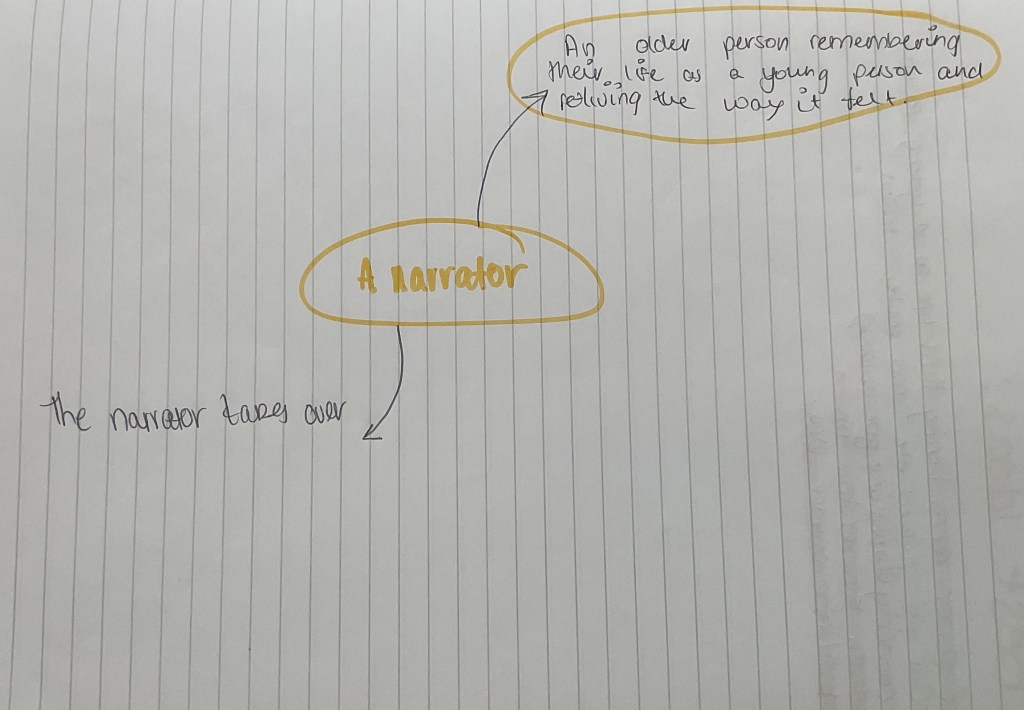 An older person remembering
their life as a young person and
reliving the way it felt.
A narrator
the narrator takes over